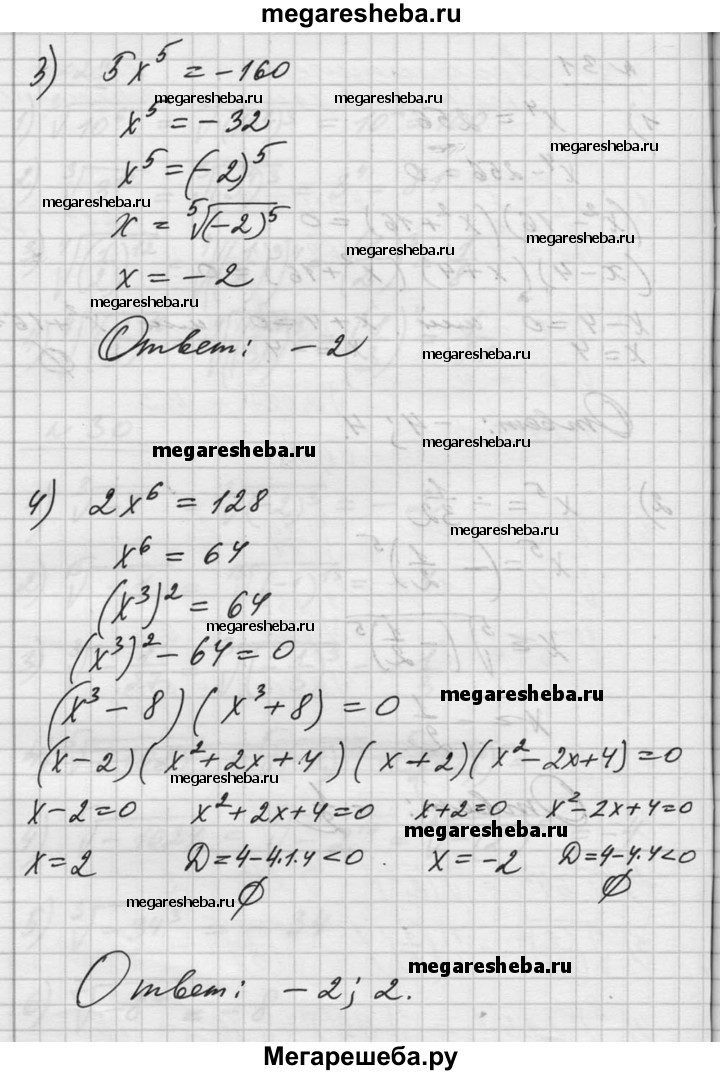 megaresheba.ru
3) 5x⁵ = -160
megaresheba.ru megaresheba.ru
x⁵ = -32
megaresheba.ru
x⁵ = (-2)⁵
megaresheba.ru
x = ⁵√(-2)⁵
megaresheba.ru
megaresheba.ru
x = -2
megaresheba.ru
Ответ: -2
megaresheba.ru
megaresheba.ru
megaresheba.ru
4) 2x⁶ = 128
megaresheba.ru
x⁶ = 64
(x³)² = 64
megaresheba.ru
(x³)² - 64 = 0
megaresheba.ru
(x³ - 8)(x³ + 8) = 0
(x-2)(x²+2x+4)(x+2)(x²-2x+4)=0
megaresheba.ru
x-2=0 x²+2x+4=0 x+2=0 x²-2x+4=0
megaresheba.ru
x=2 D=4-4.1.4<0. x=-2 D=4-4.4<0
megaresheba.ru ∅ ∅
megaresheba.ru
Ответ: -2; 2.
Мегарешеба.ру